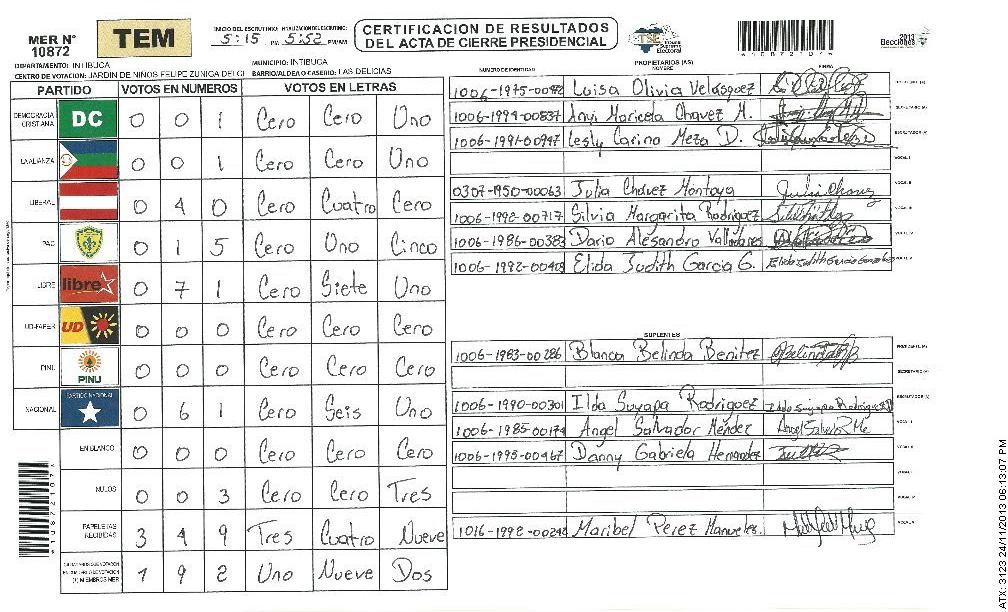 MER Nº
10872
TEM
INICIO DEL ESCRUTINIO: FINALIZACION DEL ESCRUTINIO:
5:15 PM 5:52 PM/AM
CERTIFICACION DE RESULTADOS
DEL ACTA DE CIERRE PRESIDENCIAL
TSE Tribunal Supremo Electoral
*108721071*
2013
Elecciones
DEPARTAMENTO: INTIBUCA
MUNICIPIO: INTIBUCA
CENTRO DE VOTACION: JARDIN DE NIÑOS FELIPE ZUNIGA DEL CI
BARRIO/ALDEA O CASERIO: LAS DELICIAS
PARTIDO VOTOS EN NUMEROS VOTOS EN LETRAS
DEMOCRACIA CRISTIANA DC 0 0 1 Cero Cero Uno
LA ALIANZA 0 0 1 Cero Cero Uno
LIBERAL 0 4 0 Cero Cuatro Cero
PAC 0 1 5 Cero Uno Cinco
LIBRE libre 0 7 1 Cero Siete Uno
UD-FAPER UD 0 0 0 Cero Cero Cero
PINU PINU 0 0 0 Cero Cero Cero
NACIONAL PARTIDO NACIONAL 0 6 1 Cero Seis Uno
EN BLANCO 0 0 0 Cero Cero Cero
NULOS 0 0 3 Cero Cero Tres
PAPELETAS RECIBIDAS 3 4 9 Tres Cuatro Nueve
1 9 2 Uno Nueve Dos
PROPIETARIOS (AS)
NUMERO DE IDENTIDAD NOMBRE FIRMA
Luisa Olivia Velásquez
1006-1994-00837 Anyi Maricela Chavez M.
1006-1991-00947 Lesly Carina Meza D.
VOCAL I
0307-1950-00063 Julia Chávez Montoya Julia Chavez
1006-1992-00717 Silvia Margarita Rodriguez
1006-1986-00383 Dario Alesandro Valladares
Elida Judith Garcia G.
SUPLENTES
1006-1983-00286 Blanca Belinda Benitez
SECRETARIO (A)
1006-1990-00301 Ilda Suyapa Rodriguez Ilda Suyapa Rodriguez
1006-1985-00174 Angel Salvador Méndez
1006-1995-00467 Danny Gabriela Hernandez
1016-1992-00242 Maribel Perez Manueles.
*108721071*
ATX: 3123 24/11/2013 06:13:07 PM